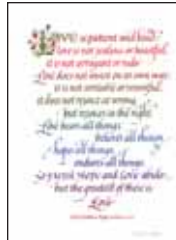 Love is patient and kind
love is not jealous or boastful
it is not arrogant or rude
Love does not insist on its own way
it is not irritable or resentful,
it does not rejoice at wrong
but rejoices in the right
Love bears all things
believes all things
hopes all things
endures all things
So Faith Hope and Love abide
but the greatest of these is
Love